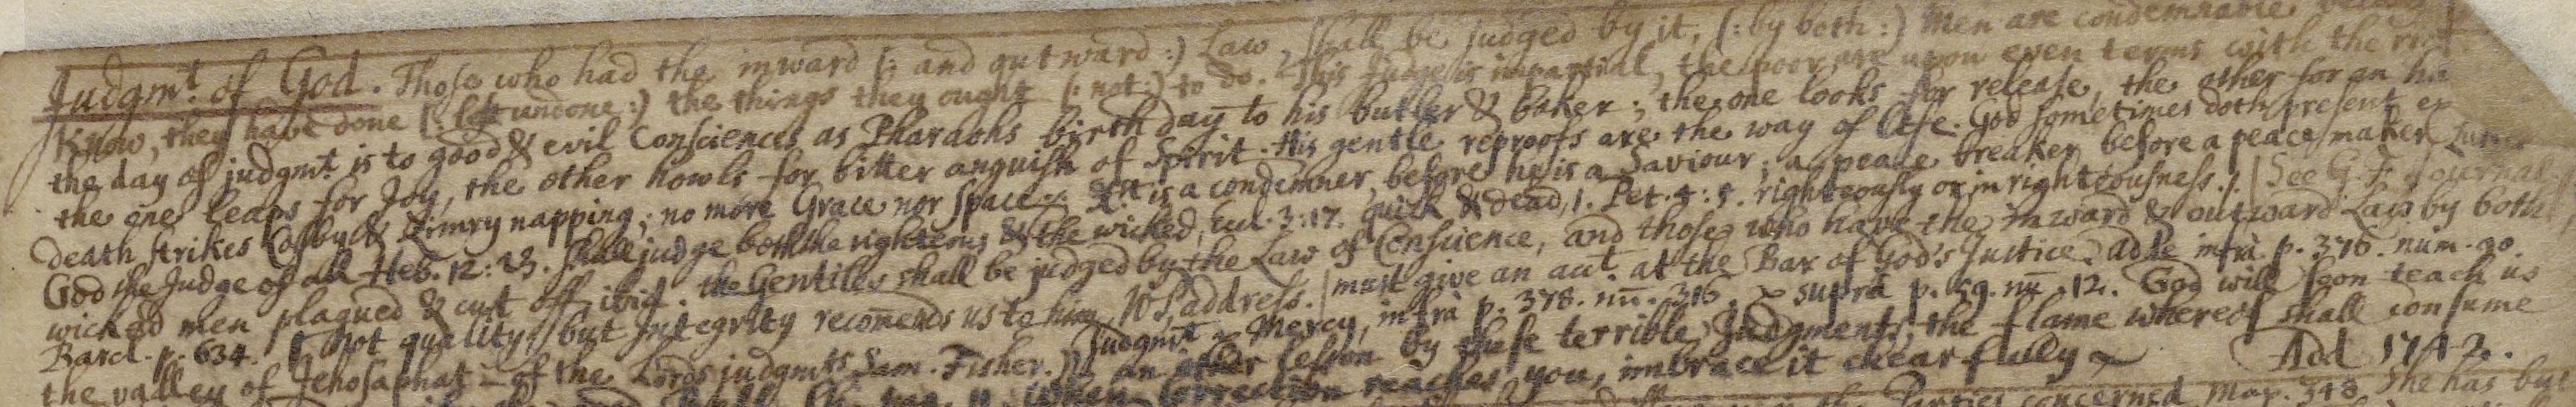 Judgmt. of God. Those who had the inward (: and outward :) Law, shall be judged by it, (: by both :) Men are condemnable
know, they have done (: left undone :) the things they ought (: not :) to do. This Judge is impartial, the poor are upon even terms with the
the day of judgmt. is to good & evil Consciences as Pharaohs birth day to his butler & baker; the one looks for release, the other for an
the one leaps for Joy, the other howls for bitter anguish of Spirit. His gentle reproofs are the way of life. God sometimes doth present
death strikes Cosby & Zimry napping; no more Grace nor space. is a condemner, before he is a Saviour; a peace breaker before a peace maker
God the Judge of all Heb. 12: 23. shall judge both the righteous & the wicked, Eccl. 3: 17. quick & dead, 1. Pet. 4: 5. righteously or in righteousness. See G. F. Journal
wicked men plagued & cut off ibid. the Gentiles shall be judged by the Law of Conscience, and those who have the inward & outward Law by both
Barcl. p. 634. not quality, but Integrity recomends us to him, Ws. address. must give an acct. at the Bar of God's Justice. adde infrà p. 376. num. 90
the valley of Jehosaphat - of the Lords judgmts Sam. Fisher. Judgmt & Mercy, infrà p. 378. nu. 316. & supra p. 59. nu. 12. God will soon teach us
an other lesson by these terrible Judgments, the flame whereof shall consume
when Correction reaches you, imbrace it chearfully Add 1742.
the Parties concerned Map. 348. She has but